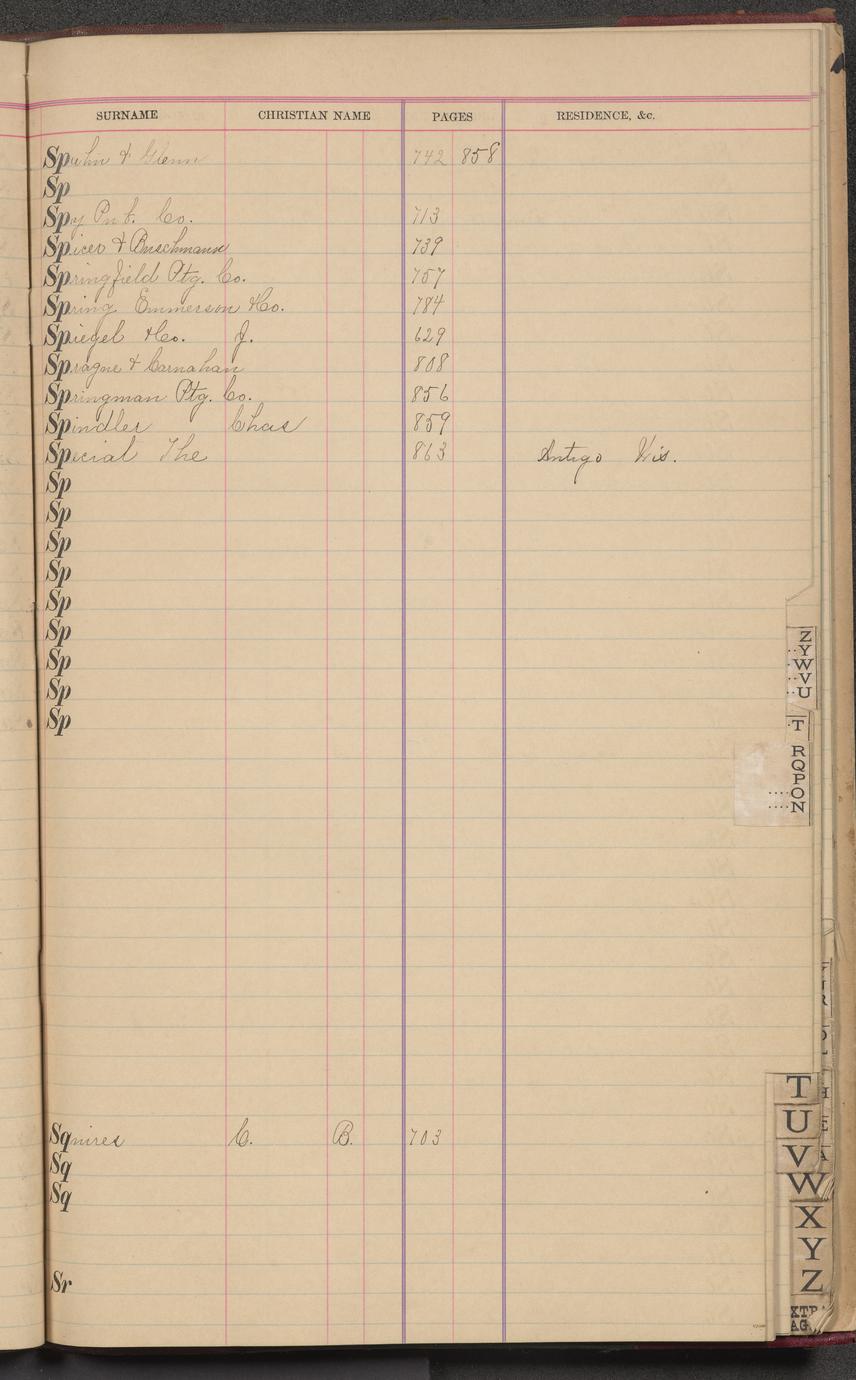 SURNAME CHRISTIAN NAME PAGES RESIDENCE, &c.
Spuhn & Glenn 742 858
Sp
Spy Pub. Co. 713
Spicer & Buschmann 739
Springfield Ptg. Co. 757
Spring Emmerson & Co. 784
Spiegel & Co. J. 629
Sprague & Carnahan 808
Springman Ptg. Co. 856
Spindler Chas 859
Special The 863 Antigo Wis.
Sp
Sp
Sp
Sp
Sp
Sp
Sp
Sp
Sp
Z
Y
W
V
U
T
R
Q
P
O
N
Squires C. B. 703
Sq
Sq
Sr
T
U
V
W
X
Y
Z